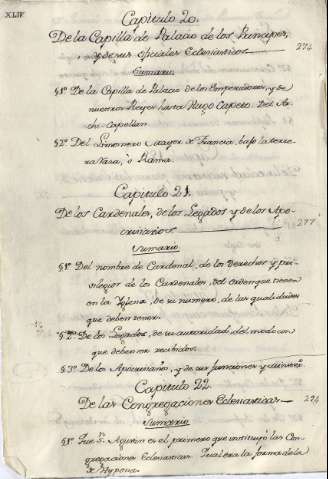 XLIV
Capitulo 20.
De la Capilla de Palacio de los Principes,
y de sus oficiales Eclesiasticos. 274
Sumario
§1º De la Capilla de Palacio de los Emperadores, y de
nuestros Reyes hasta Hugo Capeto. Del Ar-
chi-Capellan.
§2º Del Limosnero Mayor de Francia, bajo la tercera
Rama.
Capitulo 21.
De los Cardenales, de los Legados y de los Apo-
crisiarios 277
Sumario
§1º Del nombre de Cardenal, de los derechos y pri-
vilegios de los Cardenales, del orden que tienen
en la Iglesia, de su numero, de las qualidades
que deben tener.
§2º De los Legados, de su autoridad, del modo con
que deben ser recibidos.
§3º De los Apocrisiarios, y de sus funciones
Capitulo 22.
De las Congregaciones Eclesiasticas. 294
Sumario
§1º Que Sn. Agustin es el primero que instituyó las Con-
gregaciones Eclesiasticas. Qual era la forma de la
de Hypona.